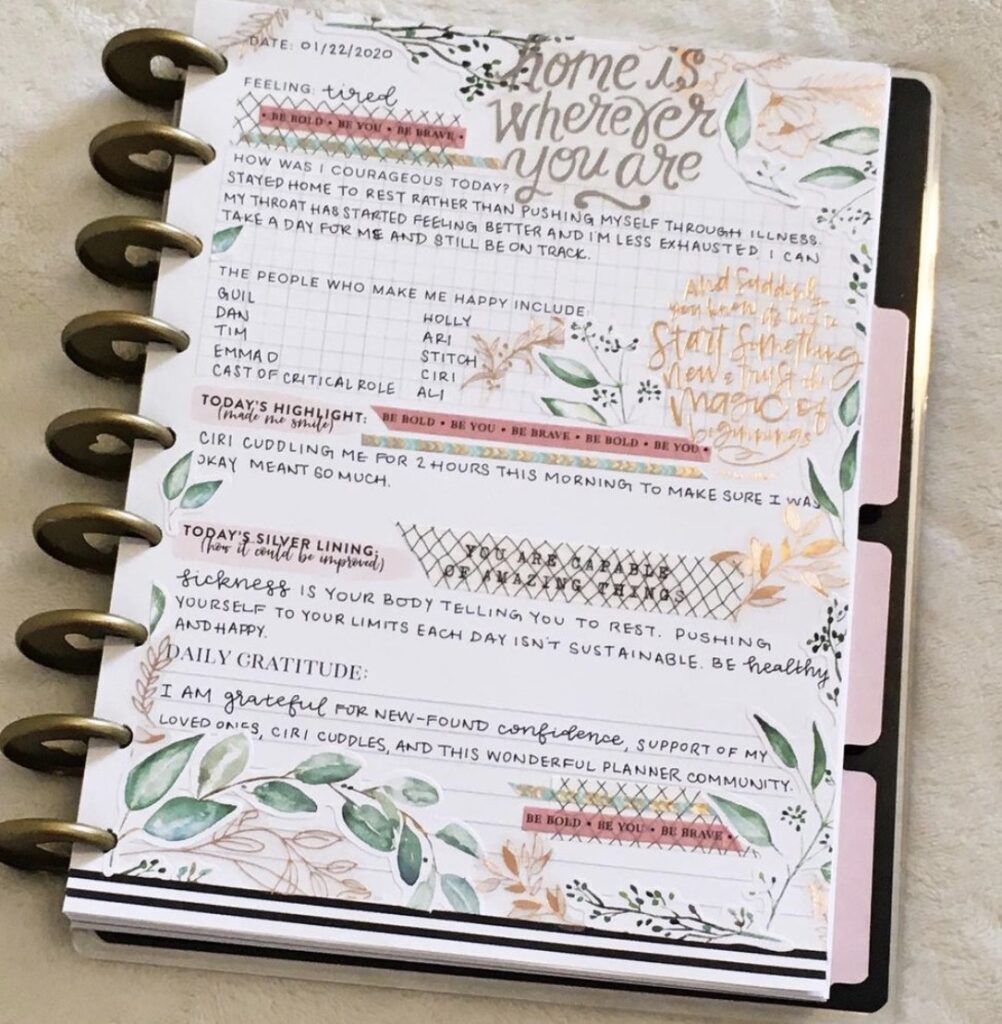 DATE: 01/22/2020
home is
wherever
you are
FEELING: tired
• BE BOLD • BE YOU • BE BRAVE •
HOW WAS I COURAGEOUS TODAY?
STAYED HOME TO REST RATHER THAN PUSHING MYSELF THROUGH ILLNESS.
MY THROAT HAS STARTED FEELING BETTER AND I'M LESS EXHAUSTED. I CAN
TAKE A DAY FOR ME AND STILL BE ON TRACK.
THE PEOPLE WHO MAKE ME HAPPY INCLUDE:
GUIL
DAN
TIM
EMMA D
CAST OF CRITICAL ROLE
HOLLY
ARI
STITCH
CIRI
ALI
And suddenly
you know its time to
Start Something
New & trust the
Magic of
beginnings
TODAY'S HIGHLIGHT:
(made me smile)
BE BOLD • BE YOU • BE BRAVE • BE BOLD • BE YOU •
CIRI CUDDLING ME FOR 2 HOURS THIS MORNING TO MAKE SURE I WAS
OKAY MEANT SO MUCH.
TODAY'S SILVER LINING:
(how it could be improved)
YOU ARE CAPABLE
OF AMAZING THINGS
sickness IS YOUR BODY TELLING YOU TO REST. PUSHING
YOURSELF TO YOUR LIMITS EACH DAY ISN'T SUSTAINABLE. BE healthy
AND HAPPY.
DAILY GRATITUDE:
I AM grateful FOR NEW-FOUND confidence, SUPPORT OF MY
LOVED ONES, CIRI CUDDLES, AND THIS WONDERFUL PLANNER COMMUNITY.
BE BOLD • BE YOU • BE BRAVE •